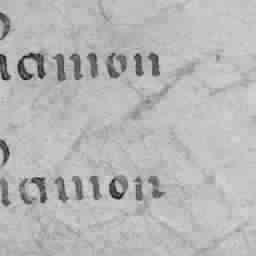 Ramon
Ramon